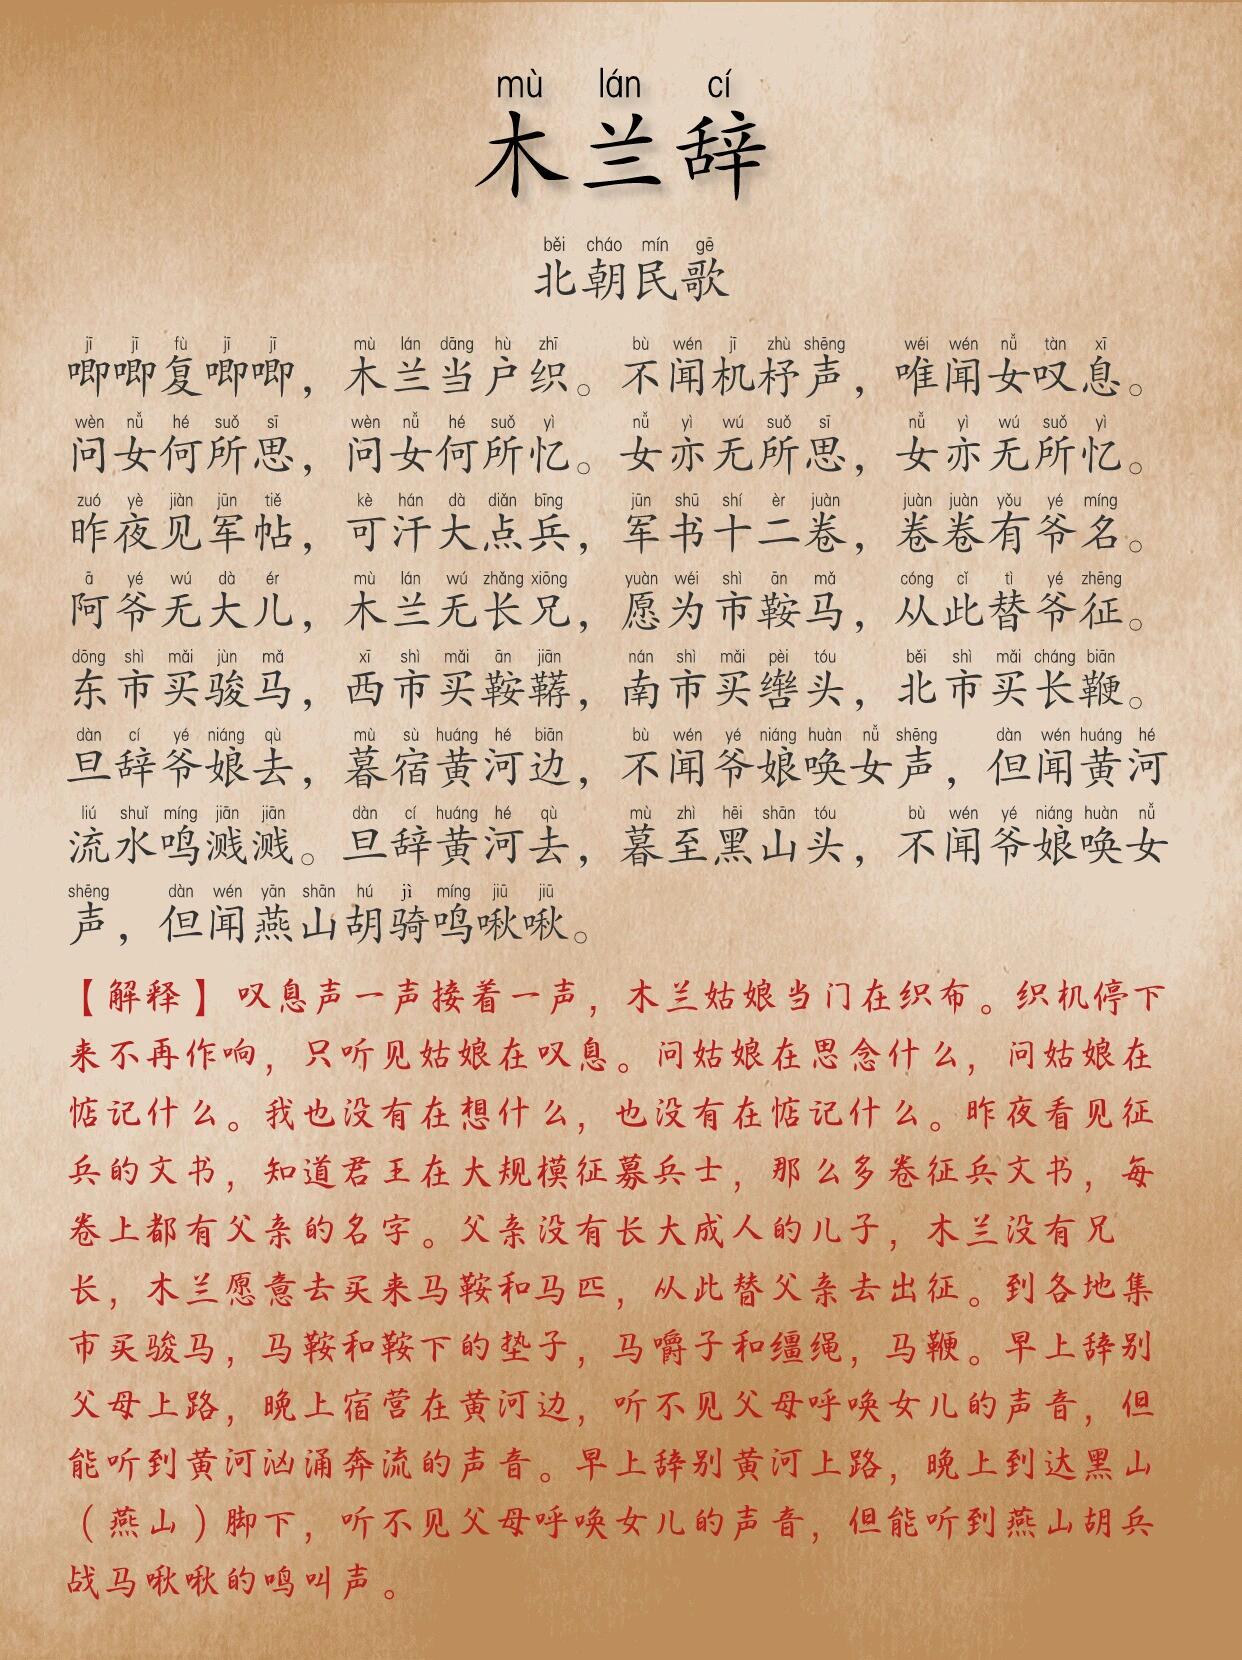 mù lán cí
木兰辞
běi cháo mín gē
北朝民歌
jī jī fù jī jī mù lán dāng hù zhī bù wén jī zhù shēng wéi wén nǚ tàn xī
唧唧复唧唧，木兰当户织。不闻机杼声，唯闻女叹息。
wèn nǚ hé suǒ sī wèn nǚ hé suǒ yì nǚ yì wú suǒ sī nǚ yì wú suǒ yì
问女何所思，问女何所忆。女亦无所思，女亦无所忆。
zuó yè jiàn jūn tiě kè hán dà diǎn bīng jūn shū shí èr juàn juàn juàn yǒu yé míng
昨夜见军帖，可汗大点兵，军书十二卷，卷卷有爷名。
ā yé wú dà ér mù lán wú zhǎng xiōng yuàn wéi shì ān mǎ cóng cǐ tì yé zhēng
阿爷无大儿，木兰无长兄，愿为市鞍马，从此替爷征。
dōng shì mǎi jùn mǎ xī shì mǎi ān jiān nán shì mǎi pèi tóu běi shì mǎi cháng biān
东市买骏马，西市买鞍鞯，南市买辔头，北市买长鞭。
dàn cí yé niáng qù mù sù huáng hé biān bù wén yé niáng huàn nǚ shēng dàn wén huáng hé
旦辞爷娘去，暮宿黄河边，不闻爷娘唤女声，但闻黄河
liú shuǐ míng jiān jiān dàn cí huáng hé qù mù zhì hēi shān tóu bù wén yé niáng huàn nǚ
流水鸣溅溅。旦辞黄河去，暮至黑山头，不闻爷娘唤女
shēng dàn wén yān shān hú jì míng jiū jiū
声，但闻燕山胡骑鸣啾啾。
【解释】叹息声一声接着一声，木兰姑娘当门在织布。织机停下
来不再作响，只听见姑娘在叹息。问姑娘在思念什么，问姑娘在
惦记什么。我也没有在想什么，也没有在惦记什么。昨夜看见征
兵的文书，知道君王在大规模征募兵士，那么多卷征兵文书，每
卷上都有父亲的名字。父亲没有长大成人的儿子，木兰没有兄
长，木兰愿意去买来马鞍和马匹，从此替父亲去出征。到各地集
市买骏马，马鞍和鞍下的垫子，马嚼子和缰绳，马鞭。早上辞别
父母上路，晚上宿营在黄河边，听不见父母呼唤女儿的声音，但
能听到黄河汹涌奔流的声音。早上辞别黄河上路，晚上到达黑山
（燕山）脚下，听不见父母呼唤女儿的声音，但能听到燕山胡兵
战马啾啾的鸣叫声。